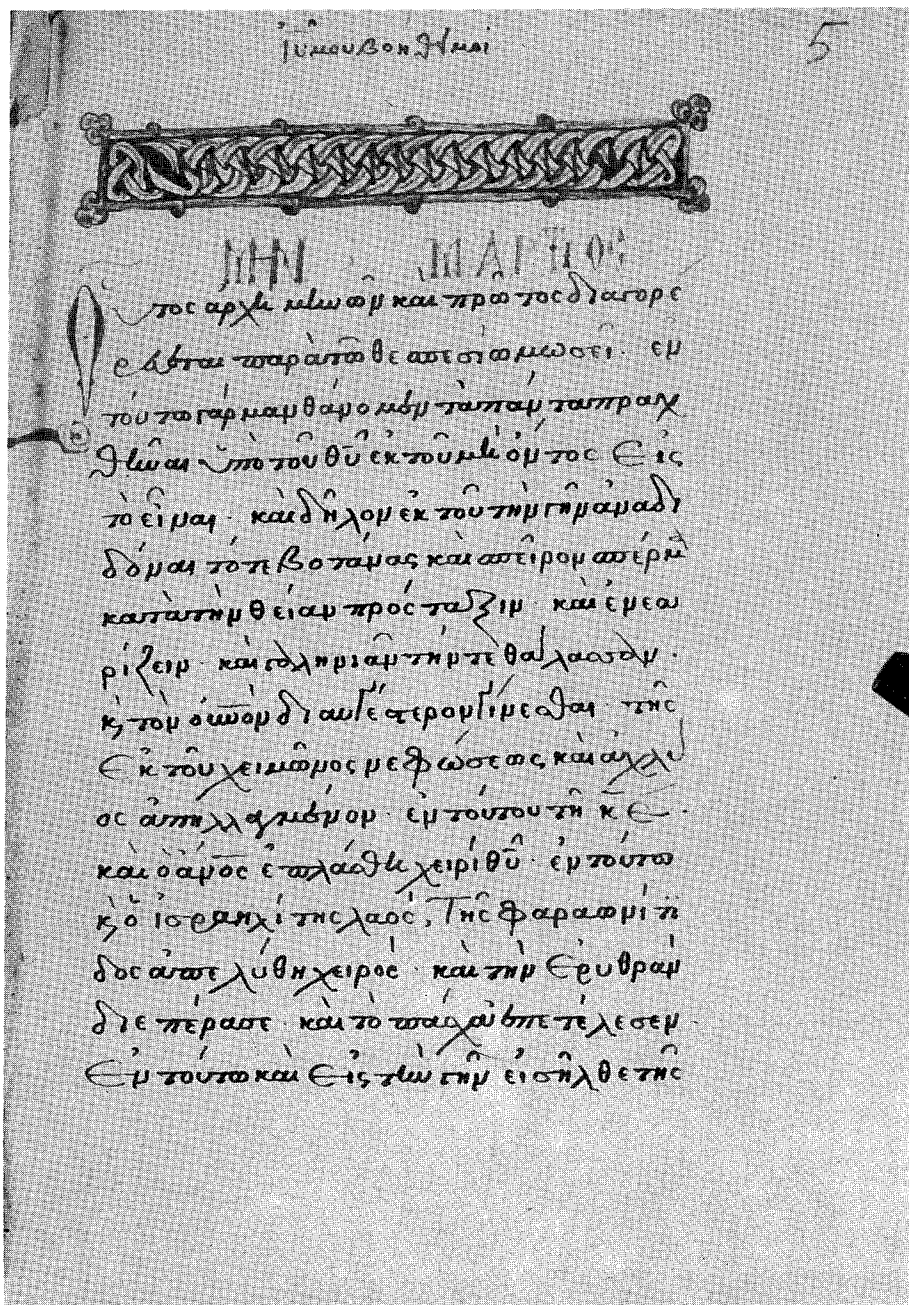 ἰῦ μου βοήθη μοι
5
ΜΗΝ ΜΑΡΤΙΟΣ
Οὗτος ἀρχὴ μηνῶν καὶ πρῶτος διαγορε
εται παρὰ τῶ θεσπεσίω μωσεῖ · ἐν
τούτω γὰρ μανθάνομεν τὰ πάντα πραχ
θῆναι ὑπὸ τοῦ θῦ ἐκ τοῦ μὴ ὄντος εἰς
τὸ εἶναι · καὶ δῆλον ἐκ τοῦ τὴν γῆν ἀναδι
δόναι τότε βοτάνας καὶ σπεῖρον σπέρμα
κατὰ τὴν θείαν πρόσταξιν · καὶ ἐν εα
ρίζειν · καὶ γαληνιᾶν τήν τε θάλασσαν ·
κ τὸν οὐνον διαυγέστερον γίνεσθαι · τῆς
ἐκ τοῦ χειμῶνος νεφώσεως καὶ ἀχλύ
ος ἀπηλλαγμένον · ἐν τούτου τῆ κε ·
καὶ ὁ ἀνος ἐπλάσθη χειρὶ θῦ · ἐν τούτω
κ ὁ ἰσραηλίτης λαός, τῆς φαραωνίτι
δος ἀπελύθη χειρός · καὶ τὴν ἐρυθρὰν
διεπέρασε · καὶ τὸ πάσχα ἐπετέλεσεν
ἐν τούτω καὶ εἰς τὴν γῆν εἰσῆλθε τῆς